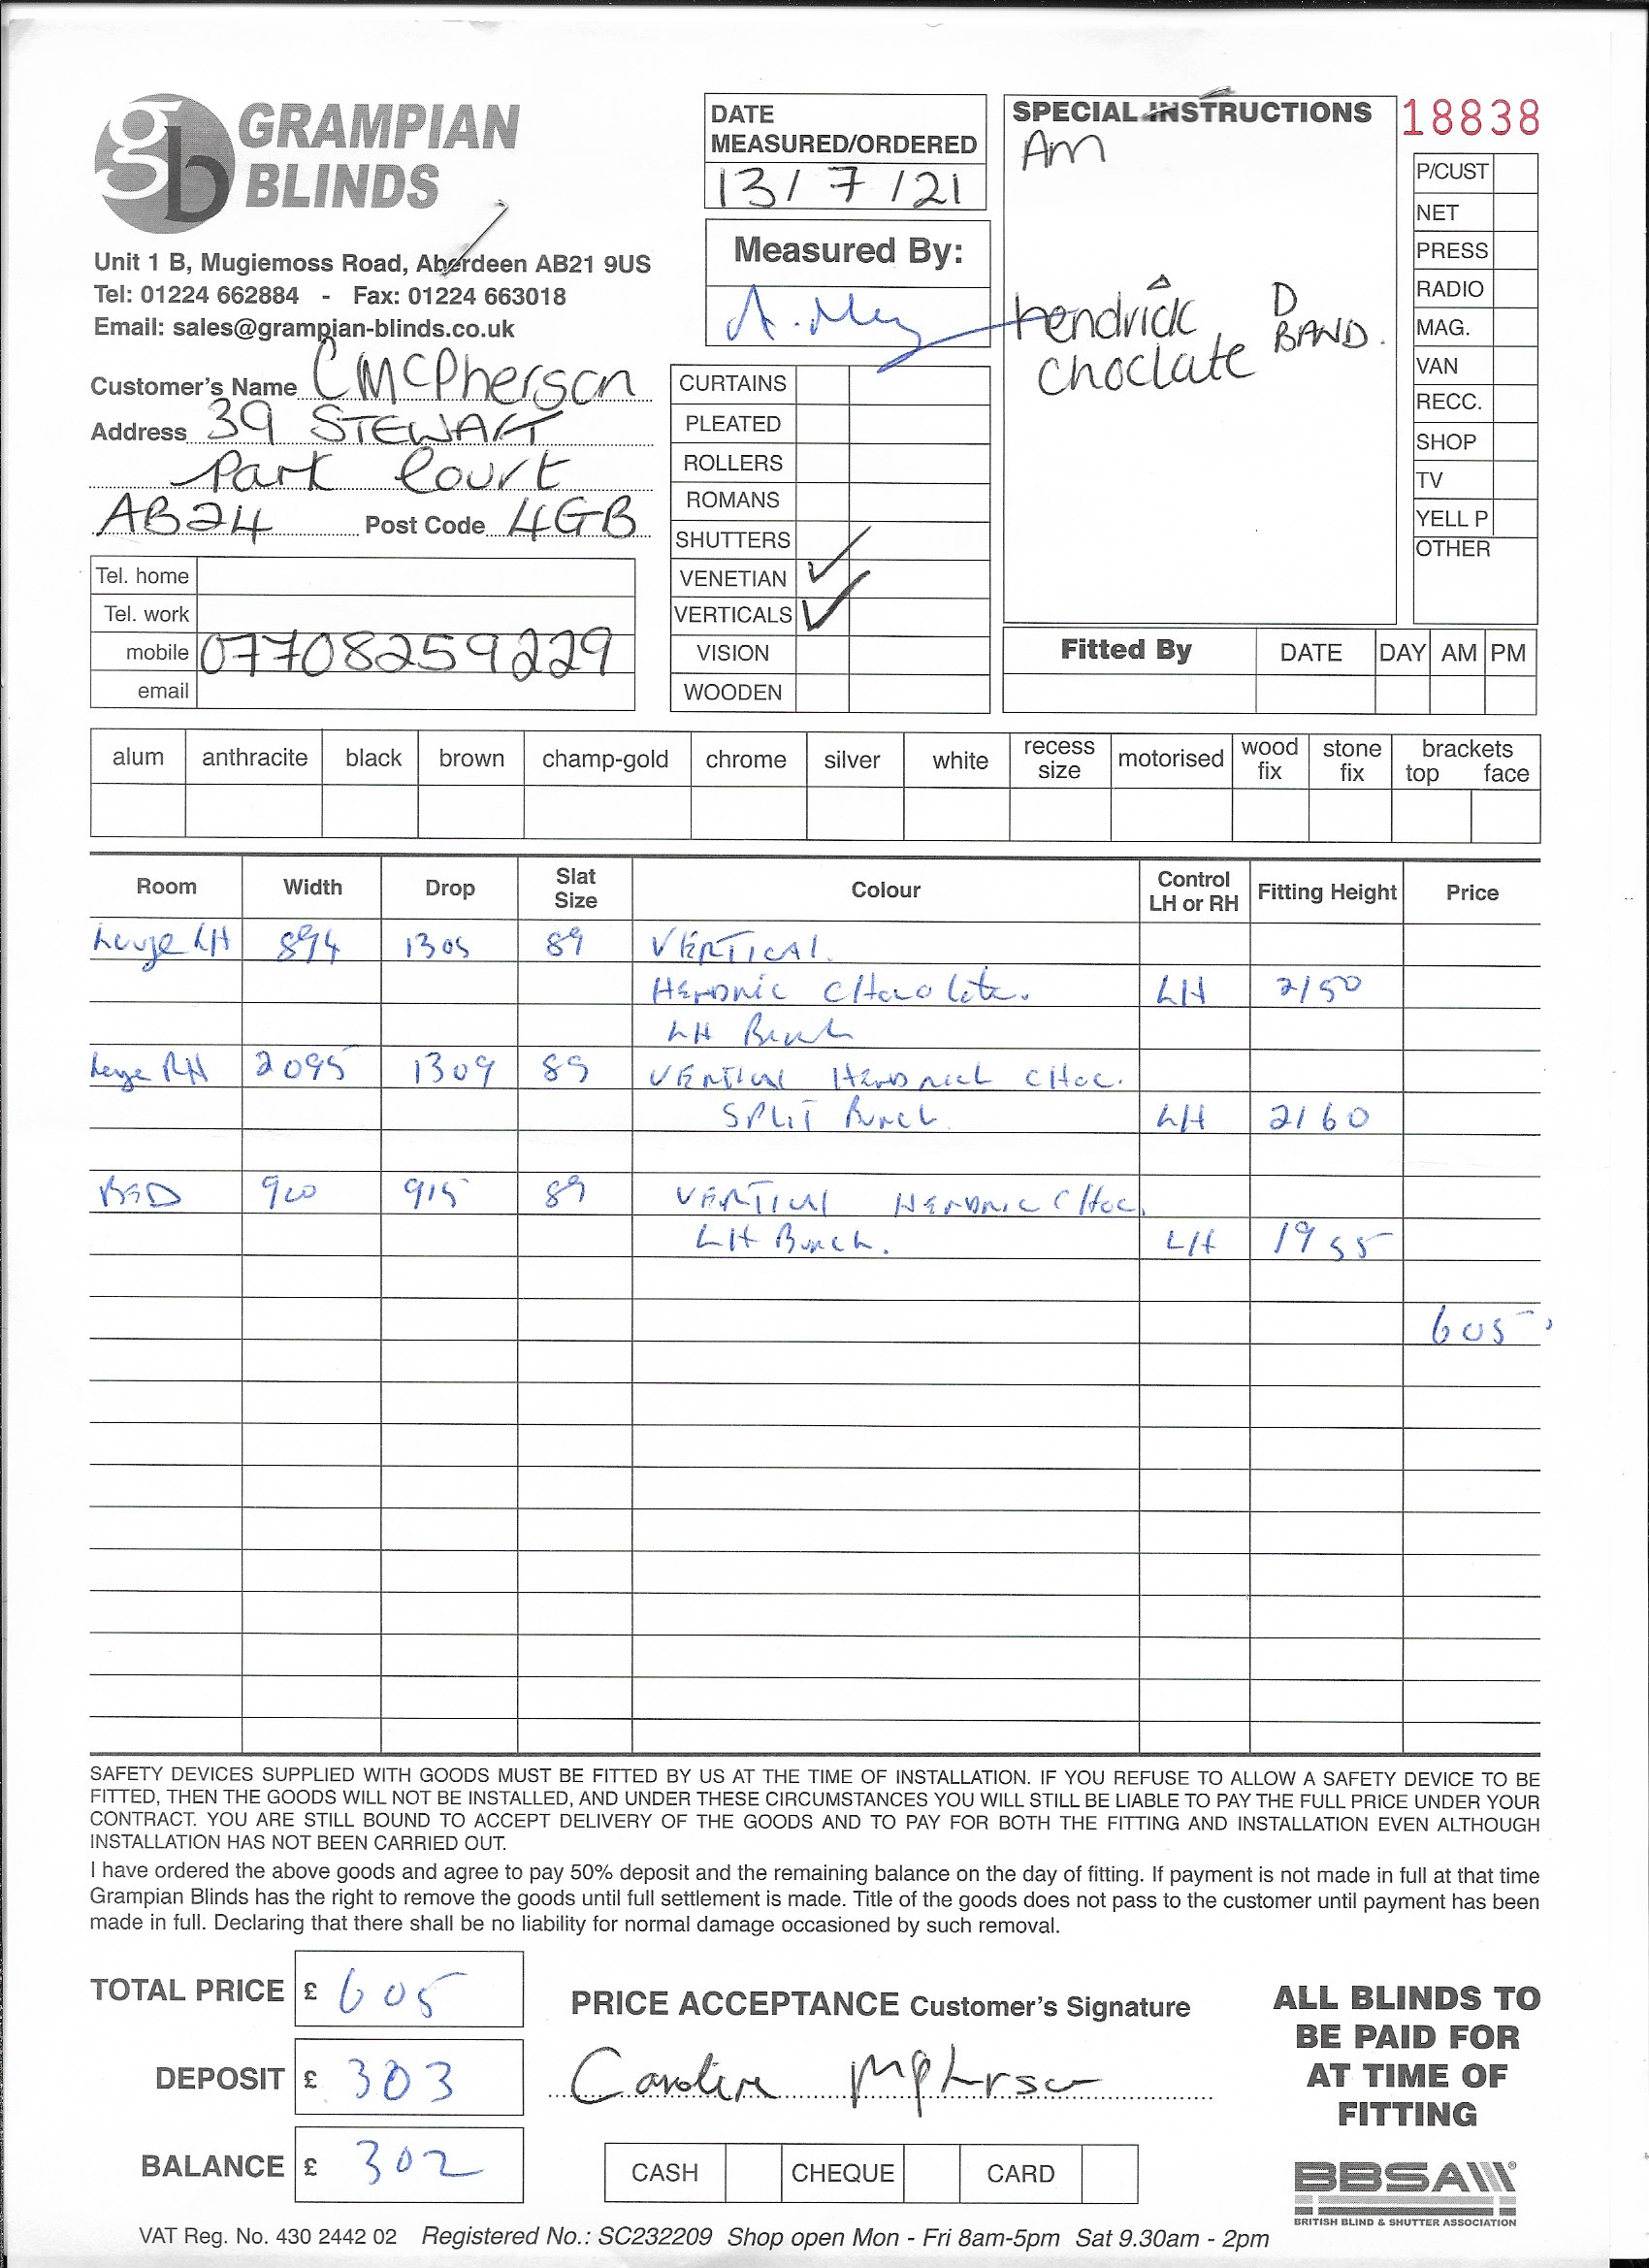 gb GRAMPIAN
BLINDS
Unit 1 B, Mugiemoss Road, Aberdeen AB21 9US
Tel: 01224 662884 - Fax: 01224 663018
Email: sales@grampian-blinds.co.uk
Customer's Name C McPherson
Address 39 STEWART
Park Court
AB24 Post Code 4GB
Tel. home
Tel. work
mobile 07708259229
email
DATE
MEASURED/ORDERED
13/7/21
Measured By:
CURTAINS
PLEATED
ROLLERS
ROMANS
SHUTTERS
VENETIAN ✓
VERTICALS ✓
VISION
WOODEN
SPECIAL INSTRUCTIONS
Am
hendrick D
choclate BAND.
18838
P/CUST
NET
PRESS
RADIO
MAG.
VAN
RECC.
SHOP
TV
YELL P
OTHER
Fitted By DATE DAY AM PM
alum anthracite black brown champ-gold chrome silver white recess size motorised wood fix stone fix brackets top face
Room Width Drop Slat Size Colour Control LH or RH Fitting Height Price
LH 894 1305 89 VERTICAL
Chocolate. LH 2150
LH Bunch
RH 2095 1309 89 VERTICAL CHOC.
SPLIT Bunch LH 2160
BED 920 915 89 VERTICAL CHOC.
LH Bunch. LH 1955
605
SAFETY DEVICES SUPPLIED WITH GOODS MUST BE FITTED BY US AT THE TIME OF INSTALLATION. IF YOU REFUSE TO ALLOW A SAFETY DEVICE TO BE
FITTED, THEN THE GOODS WILL NOT BE INSTALLED, AND UNDER THESE CIRCUMSTANCES YOU WILL STILL BE LIABLE TO PAY THE FULL PRICE UNDER YOUR
CONTRACT. YOU ARE STILL BOUND TO ACCEPT DELIVERY OF THE GOODS AND TO PAY FOR BOTH THE FITTING AND INSTALLATION EVEN ALTHOUGH
INSTALLATION HAS NOT BEEN CARRIED OUT.
I have ordered the above goods and agree to pay 50% deposit and the remaining balance on the day of fitting. If payment is not made in full at that time
Grampian Blinds has the right to remove the goods until full settlement is made. Title of the goods does not pass to the customer until payment has been
made in full. Declaring that there shall be no liability for normal damage occasioned by such removal.
TOTAL PRICE £ 605
DEPOSIT £ 303
BALANCE £ 302
PRICE ACCEPTANCE Customer's Signature
Caroline McPherson
CASH CHEQUE CARD
ALL BLINDS TO
BE PAID FOR
AT TIME OF
FITTING
BBSA ®
BRITISH BLIND & SHUTTER ASSOCIATION
VAT Reg. No. 430 2442 02 Registered No.: SC232209 Shop open Mon - Fri 8am-5pm Sat 9.30am - 2pm